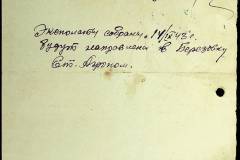 Экспонаты собраны 14/IX 43 г.
будут направлены в Березовку
Ст.